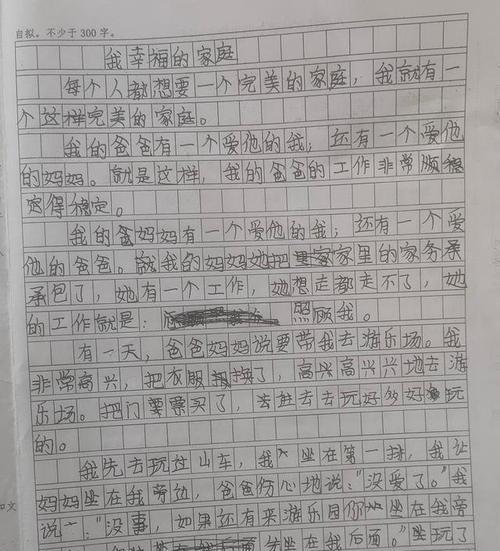 自拟。不少于300字。
我幸福的家庭
每个人都想要一个完美的家庭，我就有一
个这样完美的家庭。
我的爸爸有一个爱他的我；还有一个爱他
的妈妈。就是这样，我的爸爸的工作非常顺稳
定得稳定。
我的爸妈妈有一个爱他的我；还有一个爱
他的爸爸。我的妈妈她把家家里的家务承
承包了，她有一个工作，她想走都走不了，她
的工作就是：照顾我。
有一天，爸爸妈妈说要带我去游乐场。我
非常高兴，把衣服换了，高兴高兴兴地去游
乐场。把门票买了，去进去去玩好多好玩
的。
我先去玩过山车，我坐在第一排，我让
妈妈坐在我旁边，爸爸伤心地说："没爱了。"我
说："没事，如果还有来游乐园你坐在我旁
坐在我后面。"坐完了
作文